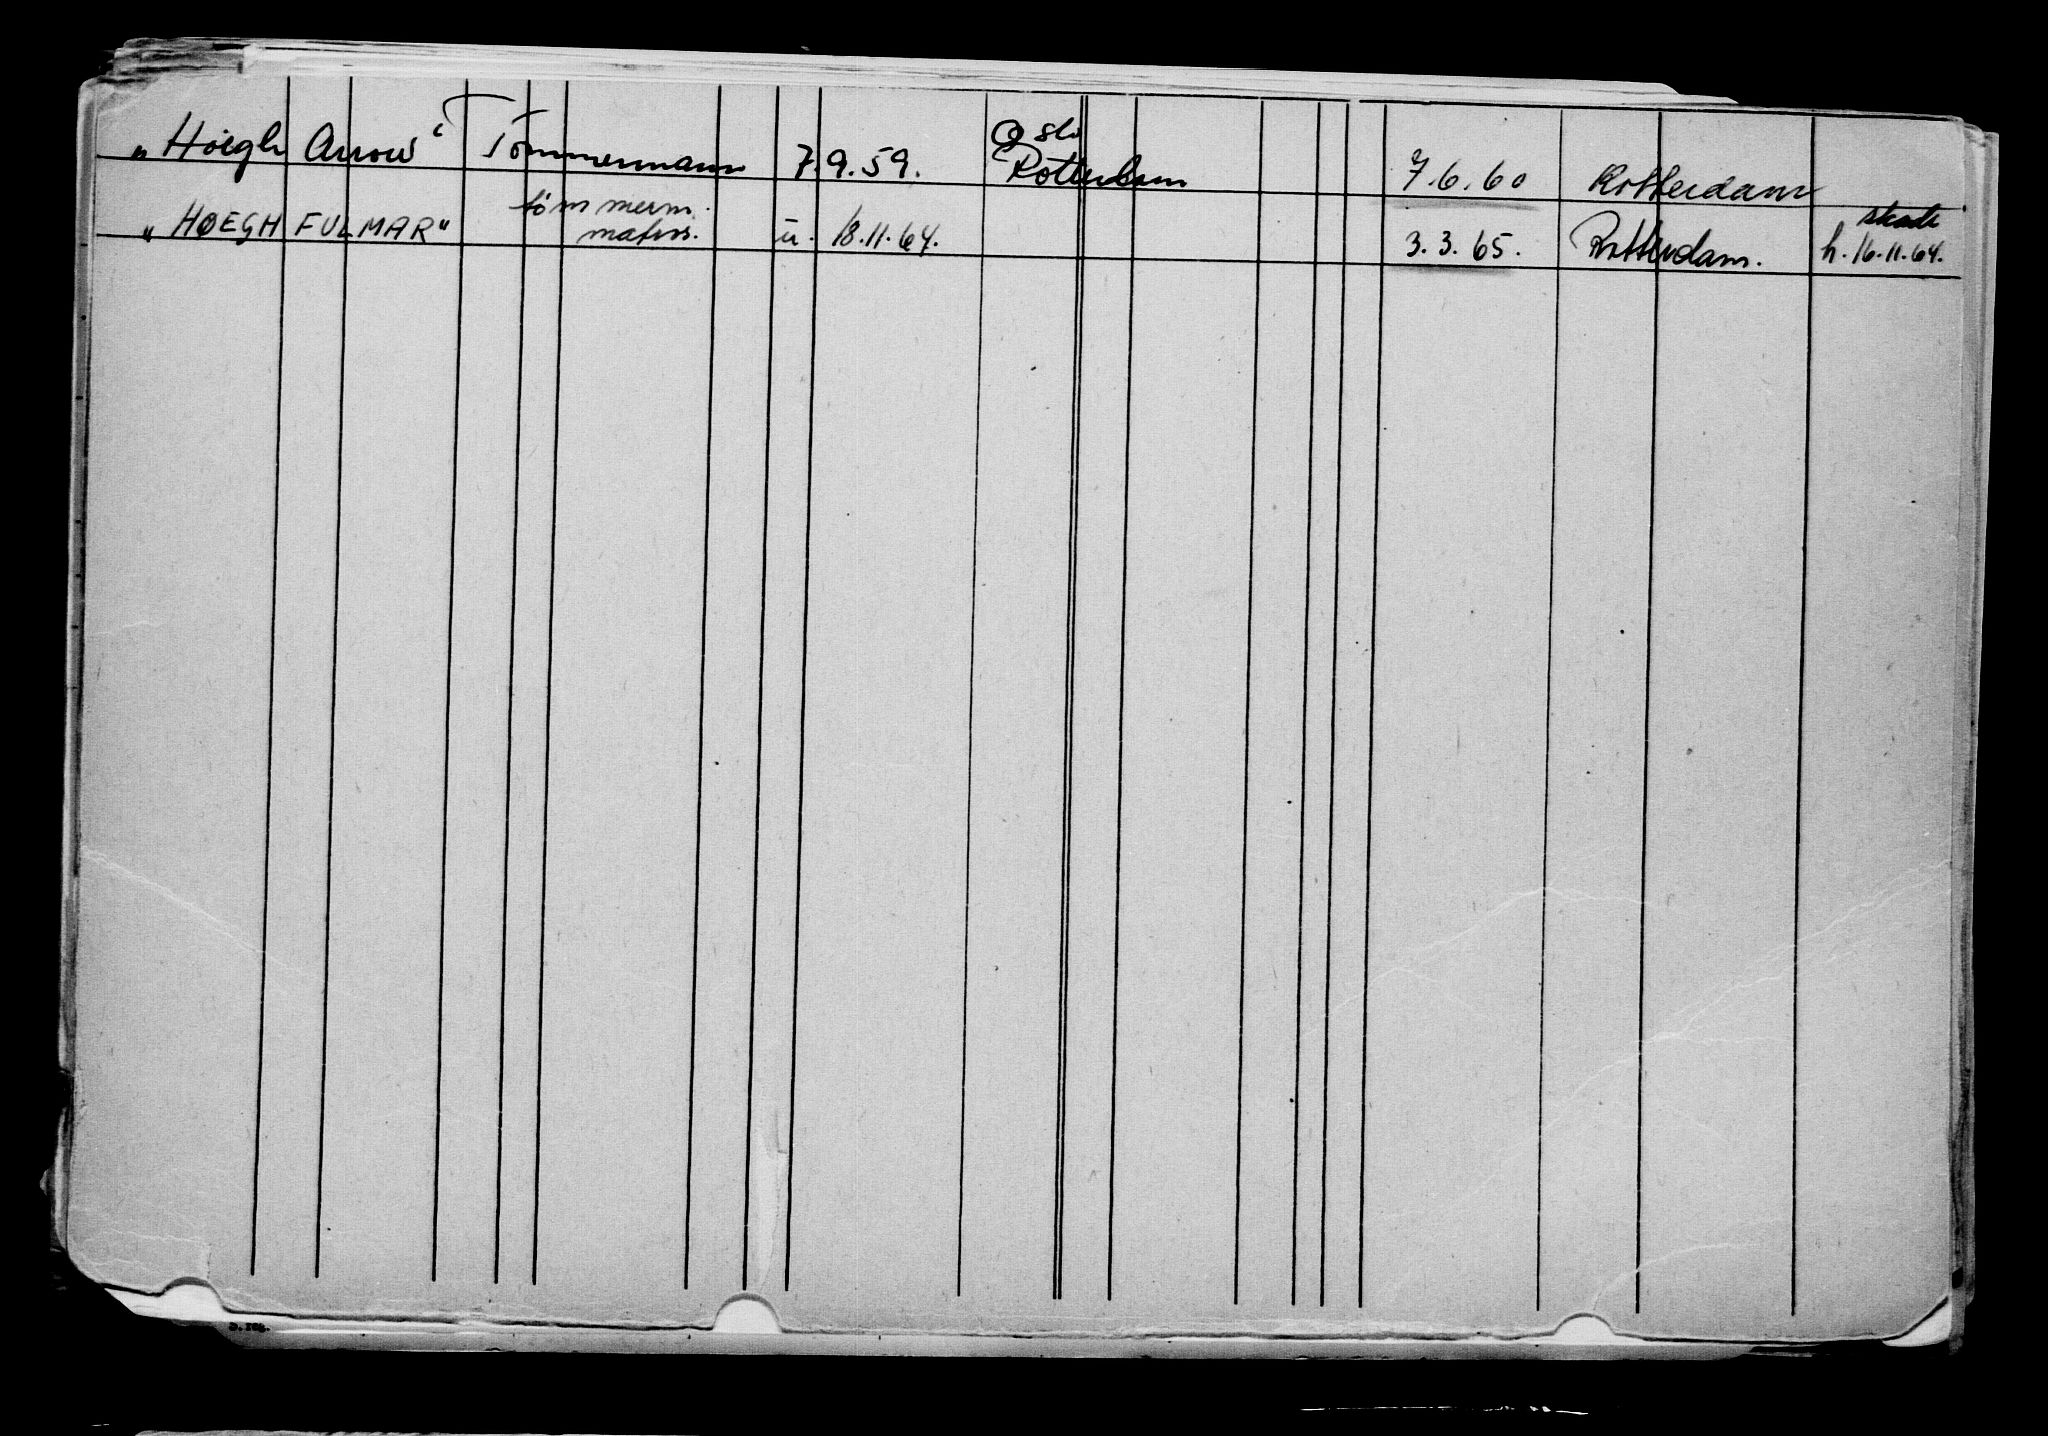 „Höegh Arrow" Tömmermann 7.9.59. Oslo Rotterdam 7.6.60 Rotterdam
„HØEGH FULMAR" tømmerm. matros. u. 18.11.64. 3.3.65. Rotterdam. skade h. 16.11.64.